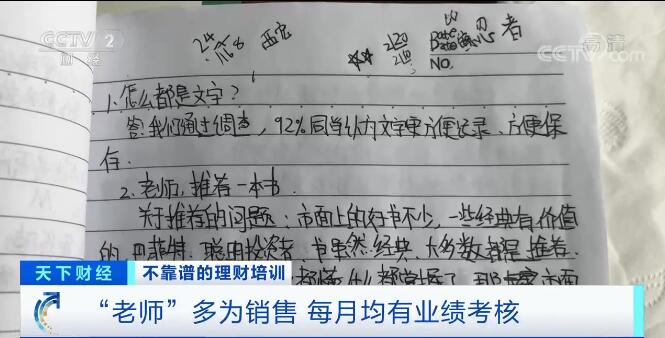 CCTV 2
财经
CCTV.com
高清
西安
者
Date
NO.
1、怎么都是文字？
答:我们通过调查，92%同学认为文字更方便记录、方便保
存.
2.老师,推荐一本书.
关于推荐的问题：市面上的好书不少，一些经典有价值
的,巴菲特.聪明投资者.书虽然经典.大多数都是推荐.
天下财经
不靠谱的理财培训
“老师”多为销售 每月均有业绩考核